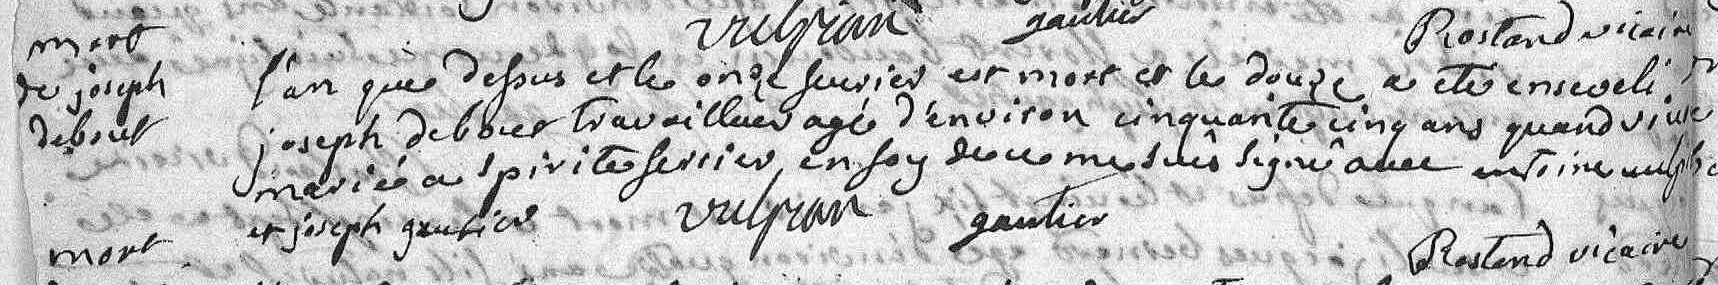 vulpian gautier Rostand vicaire
mort
de joseph
debout
l'an que dessus et le onze fevrier est mort et le douze a eté enseveli
joseph debout travailleur agé d'environ cinquante cinq ans quand vive
marié a spirite ferrier, en foy de ce me suis signé avec antoine vulpian
et joseph gautier vulpian gautier
Rostand vicaire
mort